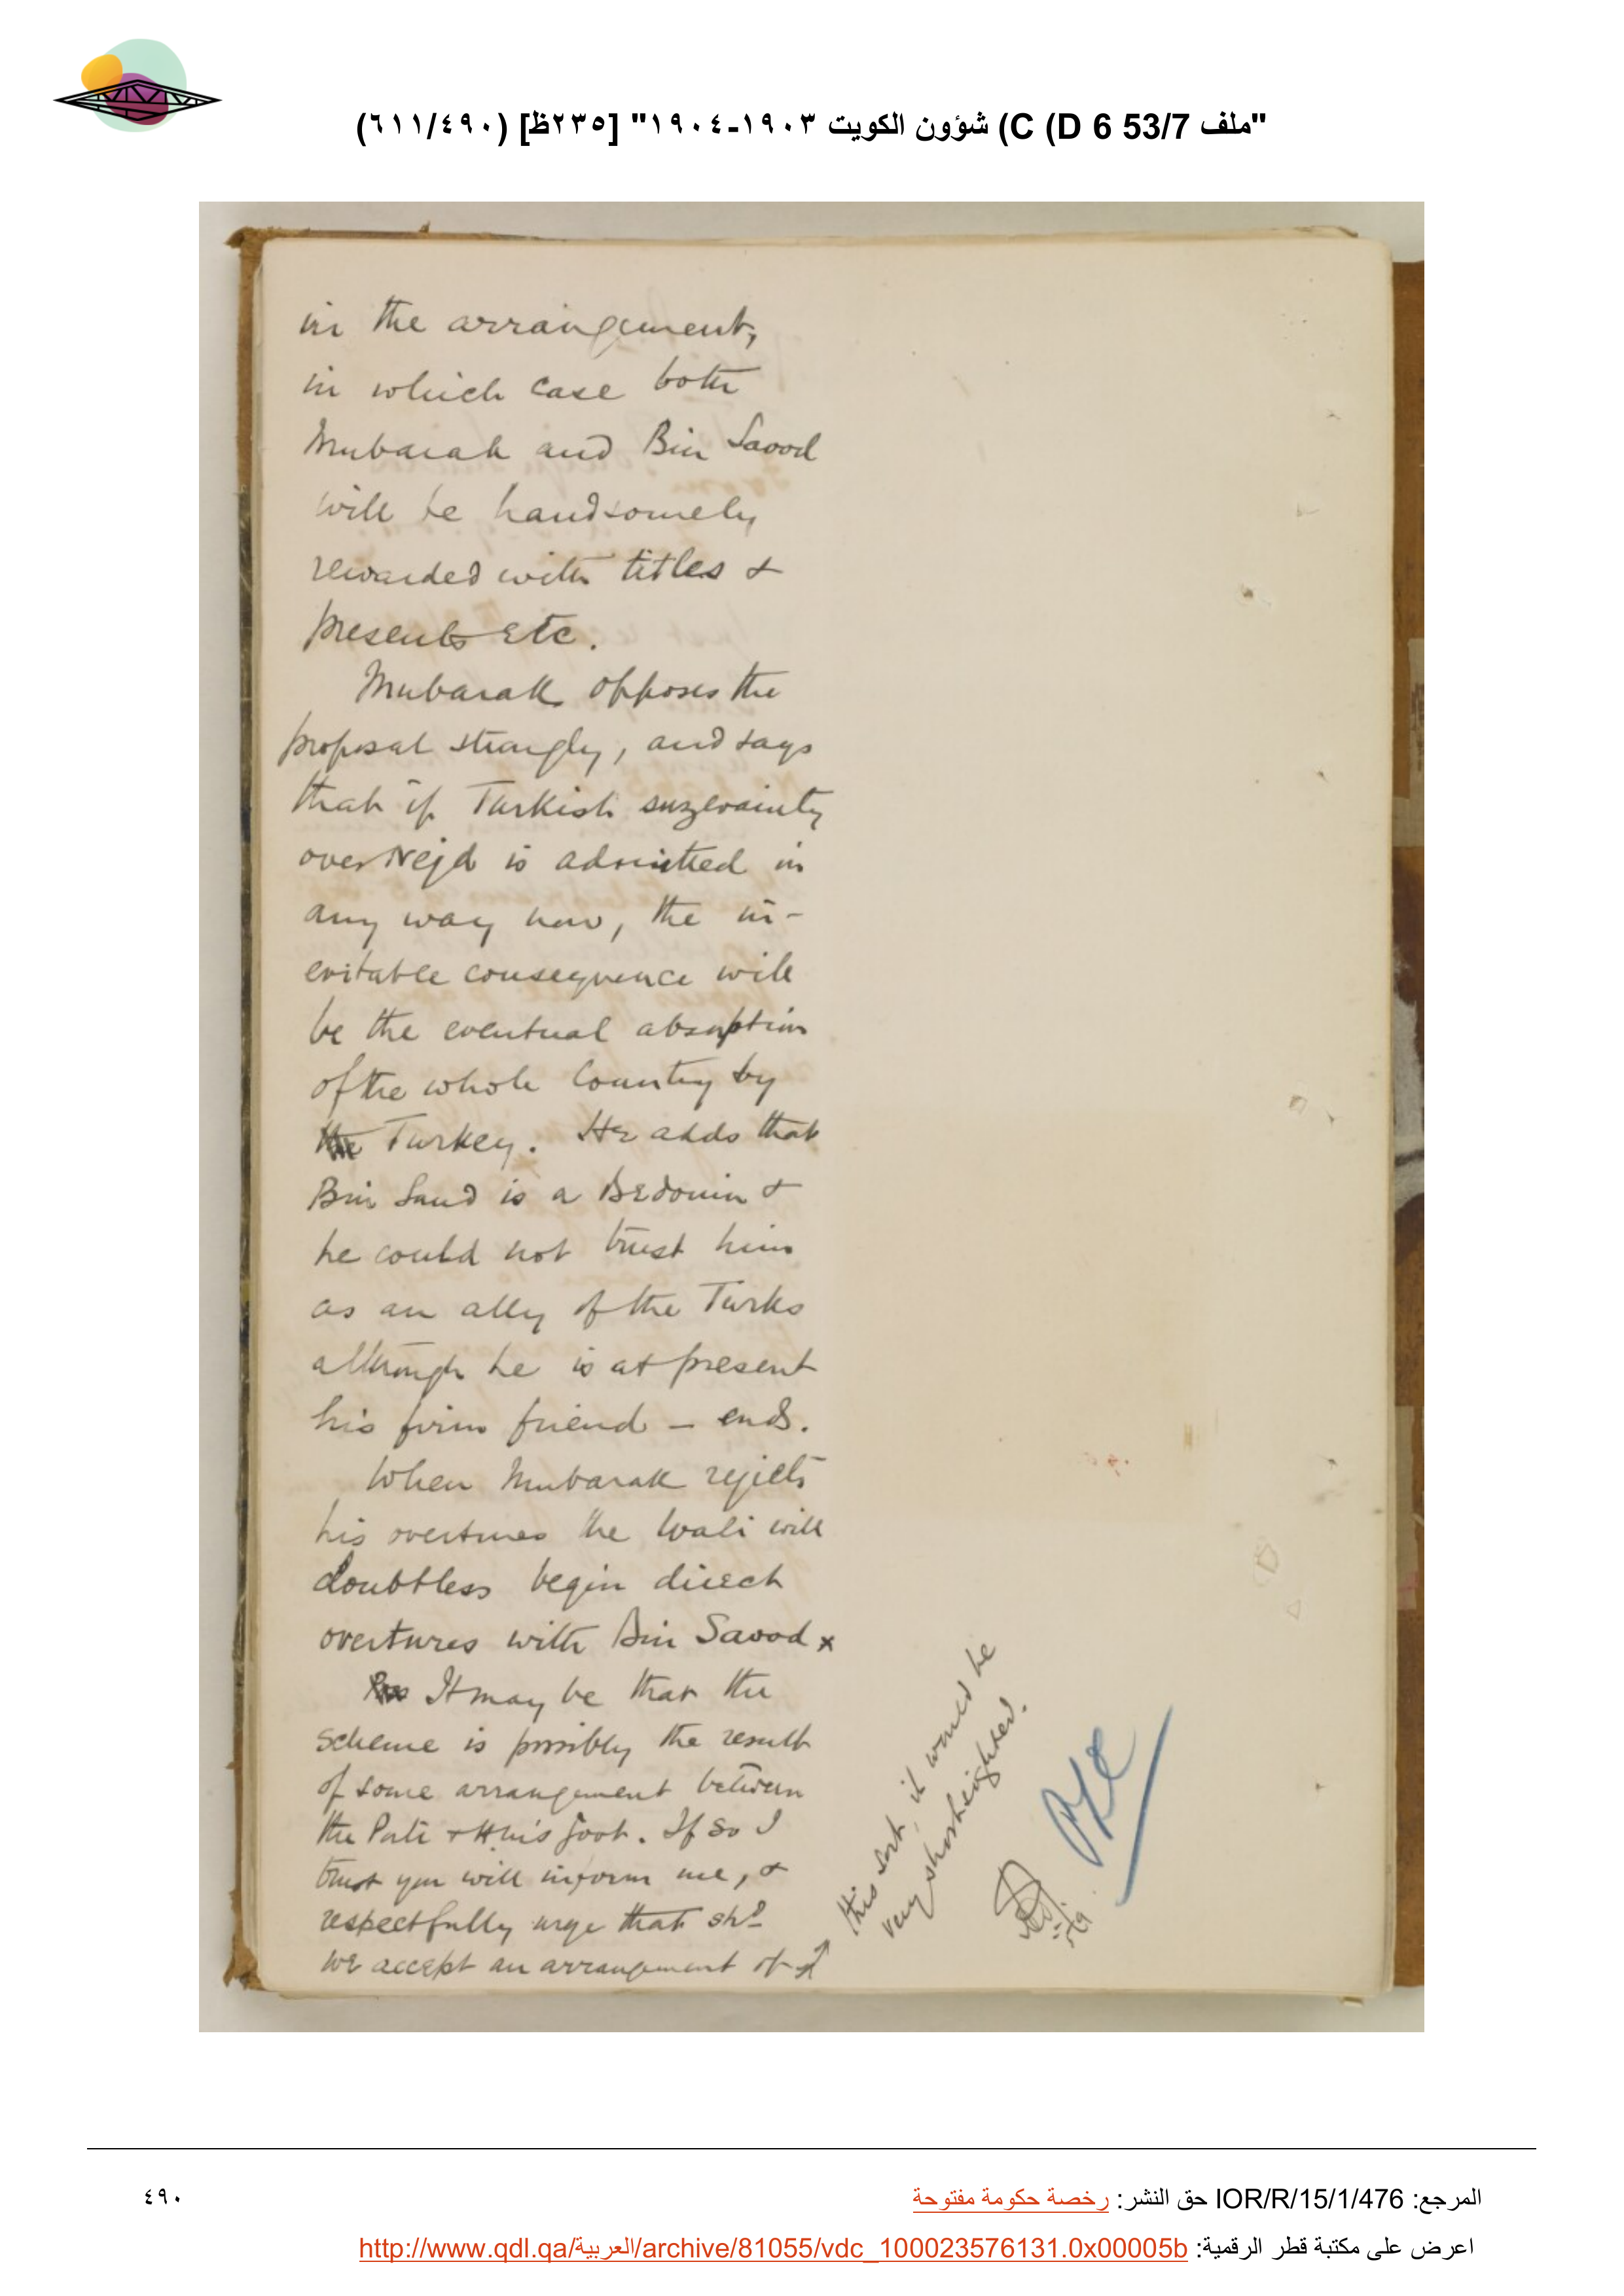 "ملف 53/7 D 6) C) شؤون الكويت ١٩٠٣-١٩٠٤" [٢٣٥ظ] (٦١١/٤٩٠)
in the arrangement,
in which case both
Mubarak and Bin Saood
will be handsomely
rewarded with titles &
presents etc.
Mubarak opposes the
proposal strongly, and says
that if Turkish suzerainty
over Nejd is admitted in
any way now, the in-
evitable consequence will
be the eventual absorption
of the whole Country by
the Turkey. He adds that
Bin Saud is a Bedouin &
he could not trust him
as an ally of the Turks
although he is at present
his firm friend – ends.
When Mubarak rejects
his overtures the Wali will
doubtless begin direct
overtures with Bin Saood x
It may be that the
scheme is possibly the result
of some arrangement between
the Porte & H.M's Govt. If so I
trust you will inform me, &
respectfully urge that shd
we accept an arrangement of
this sort, it would be
very shortsighted.
المرجع: IOR/R/15/1/476 حق النشر: رخصة حكومة مفتوحة
٤٩٠
اعرض على مكتبة قطر الرقمية: http://www.qdl.qa/العربية/archive/81055/vdc_100023576131.0x00005b